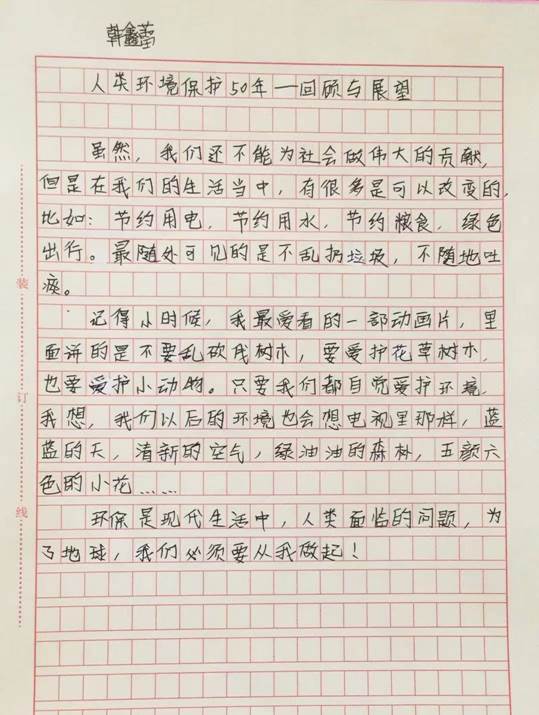 韩鑫蕾
人类环境保护50年一回顾与展望
虽然，我们还不能为社会做伟大的贡献，
但是在我们的生活当中，有很多是可以改变的，
比如：节约用电，节约用水，节约粮食，绿色
出行。最随处可见的是不乱扔垃圾，不随地吐
痰。
记得小时候，我最爱看的一部动画片，里
面讲的是不要乱砍伐树木，要爱护花草树木，
也要爱护小动物。只要我们都自觉爱护环境，
我想，我们以后的环境也会想电视里那样，蓝
蓝的天，清新的空气，绿油油的森林，五颜六
色的小花……
环保是现代生活中，人类面临的问题，为
了地球，我们必须要从我做起！
装
订
线